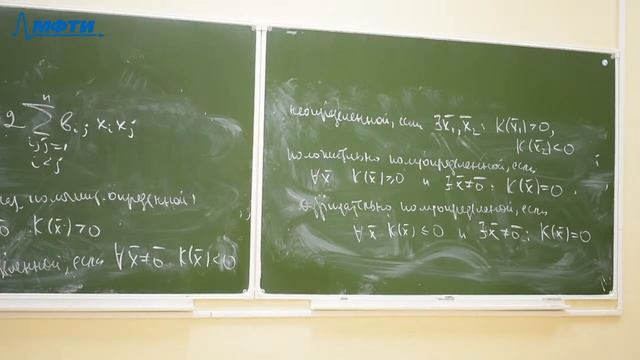 МФТИ
n
2 ∑ bᵢⱼ xᵢ xⱼ
i,j=1
i<j
определенной,
K(x̄) > 0
если ∀x̄≠0̄ K(x̄)<0
неопределенной, если ∃x̄₁, x̄₂: K(x̄₁)>0,
K(x̄₂)<0
положительно полуопределенной, если
∀x̄ K(x̄)≥0 и ∃x̄≠0̄: K(x̄)=0.
отрицательно полуопределенной, если
∀x̄ K(x̄)≤0 и ∃x̄≠0̄: K(x̄)=0